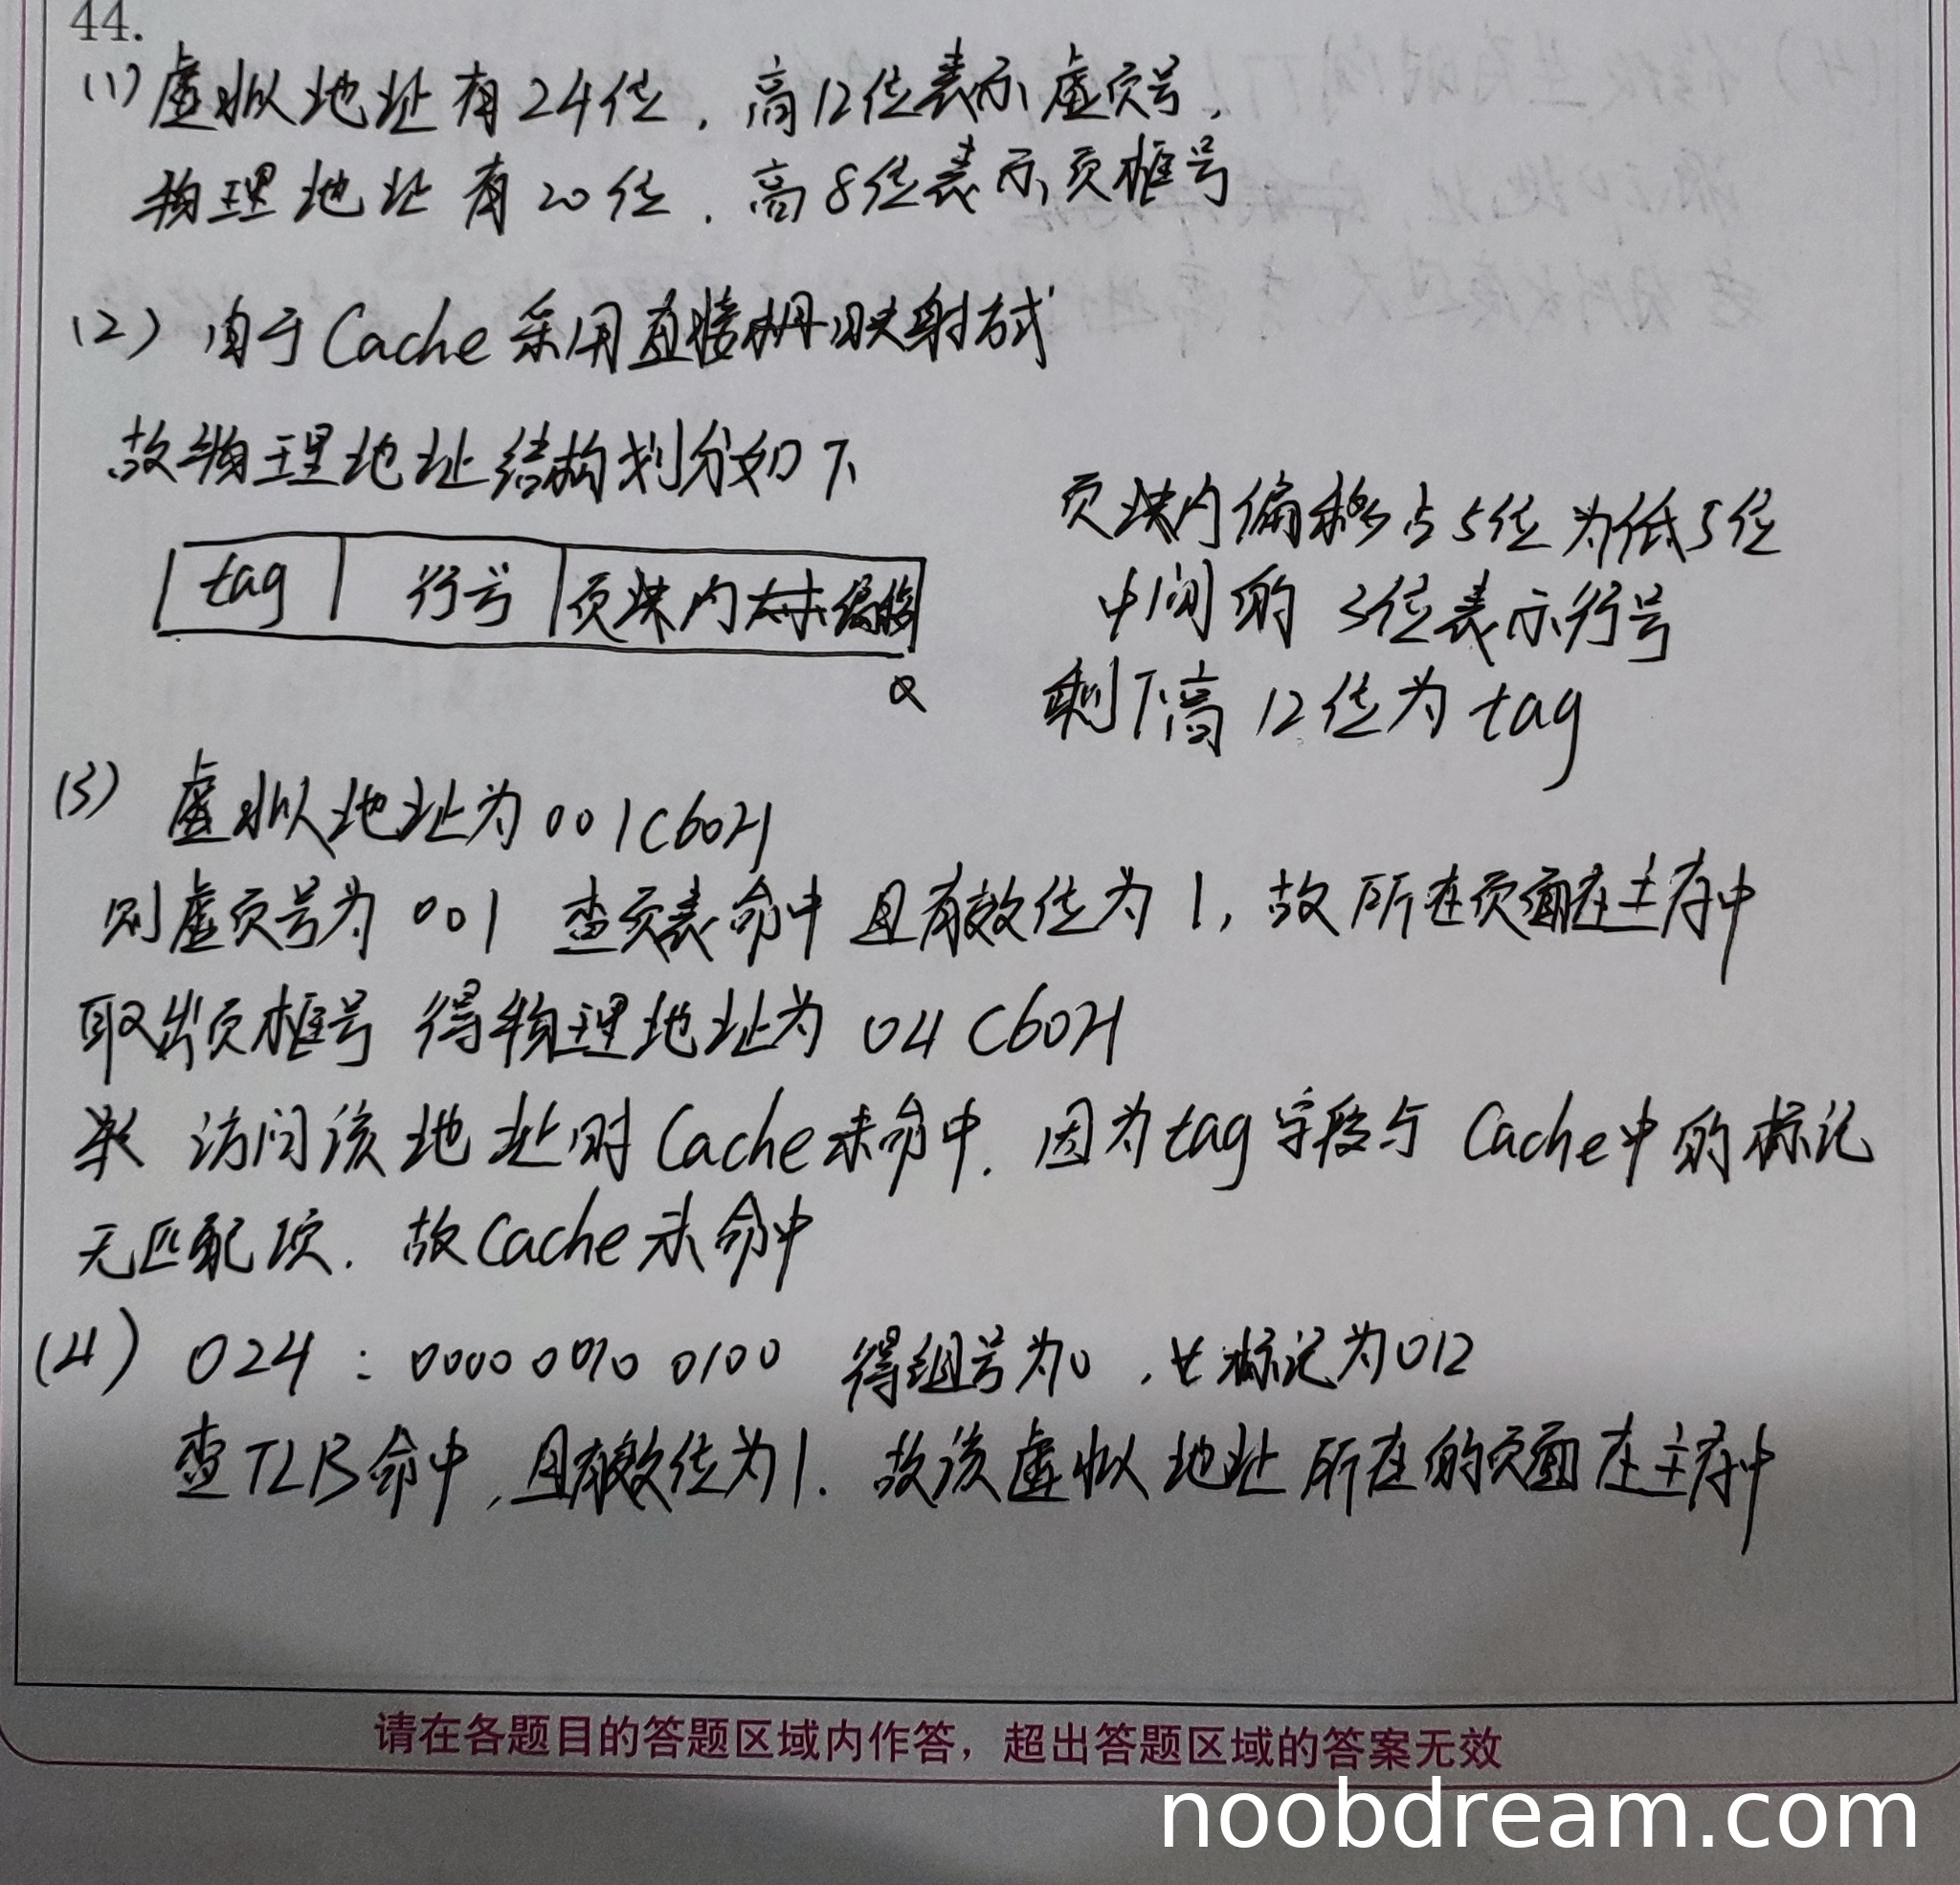 44.
(1) 虚拟地址有24位, 高12位表示虚页号,
物理地址有20位, 高8位表示页框号.
(2) 由于Cache采用直接映射方式
故物理地址结构划分如下
tag 行号 页块内偏移
页块内偏移占5位为低5位
中间的 3位表示行号
剩下高 12位为 tag
(3) 虚拟地址为 001C60H
则虚页号为 001 查页表命中 且有效位为1, 故所在页面在主存中
取出页框号 得物理地址为 04C60H
访问该地址时Cache未命中. 因为tag字段与 Cache中的标记
无匹配项. 故Cache未命中
(4) 024 : 0000 0010 0100 得组号为0 , 标记为012
查TLB命中, 且有效位为1. 故该虚拟地址所在的页面在主存中
请在各题目的答题区域内作答，超出答题区域的答案无效
noobdream.com